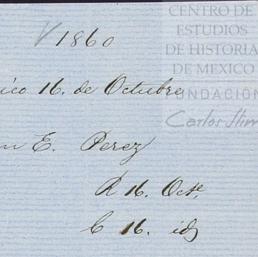 CENTRO DE
ESTUDIOS
DE HISTORIA
DE MEXICO
FUNDACIÓN
Carlos Slim
1860
ico 16. de Octubre
n E. Perez
R 16. Octe.
C 16. id